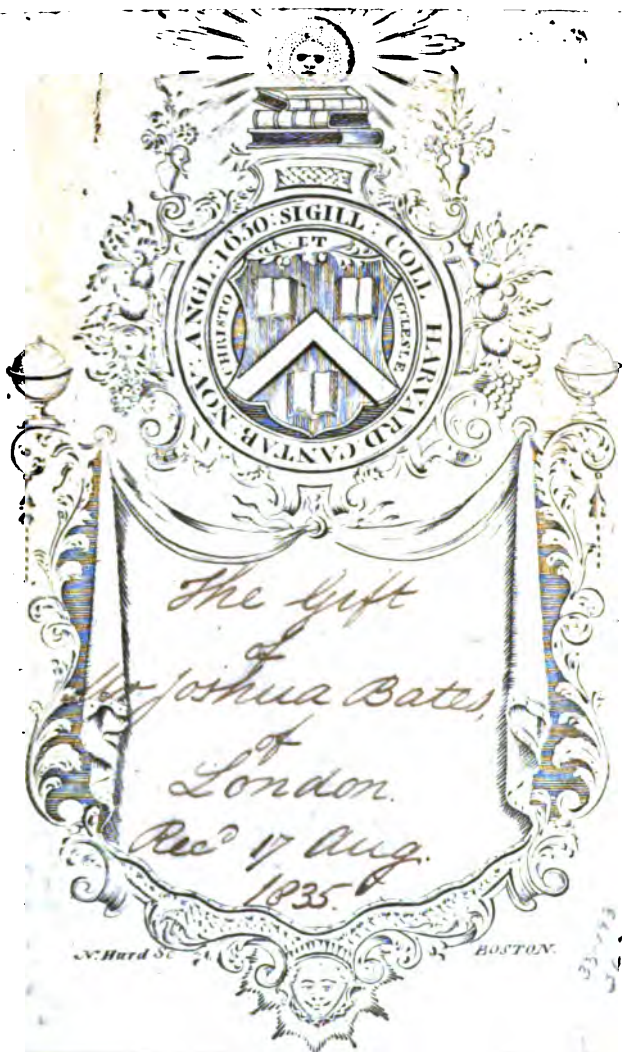 SIGILL : COLL HARVARD CANTAB NOV. ANGL : 1650 :
CHRISTO ET ECCLESIÆ
The Gift
of
Mr Joshua Bates,
of
London.
Recd 17 Aug.
1835.
N. Hurd Sc
BOSTON.